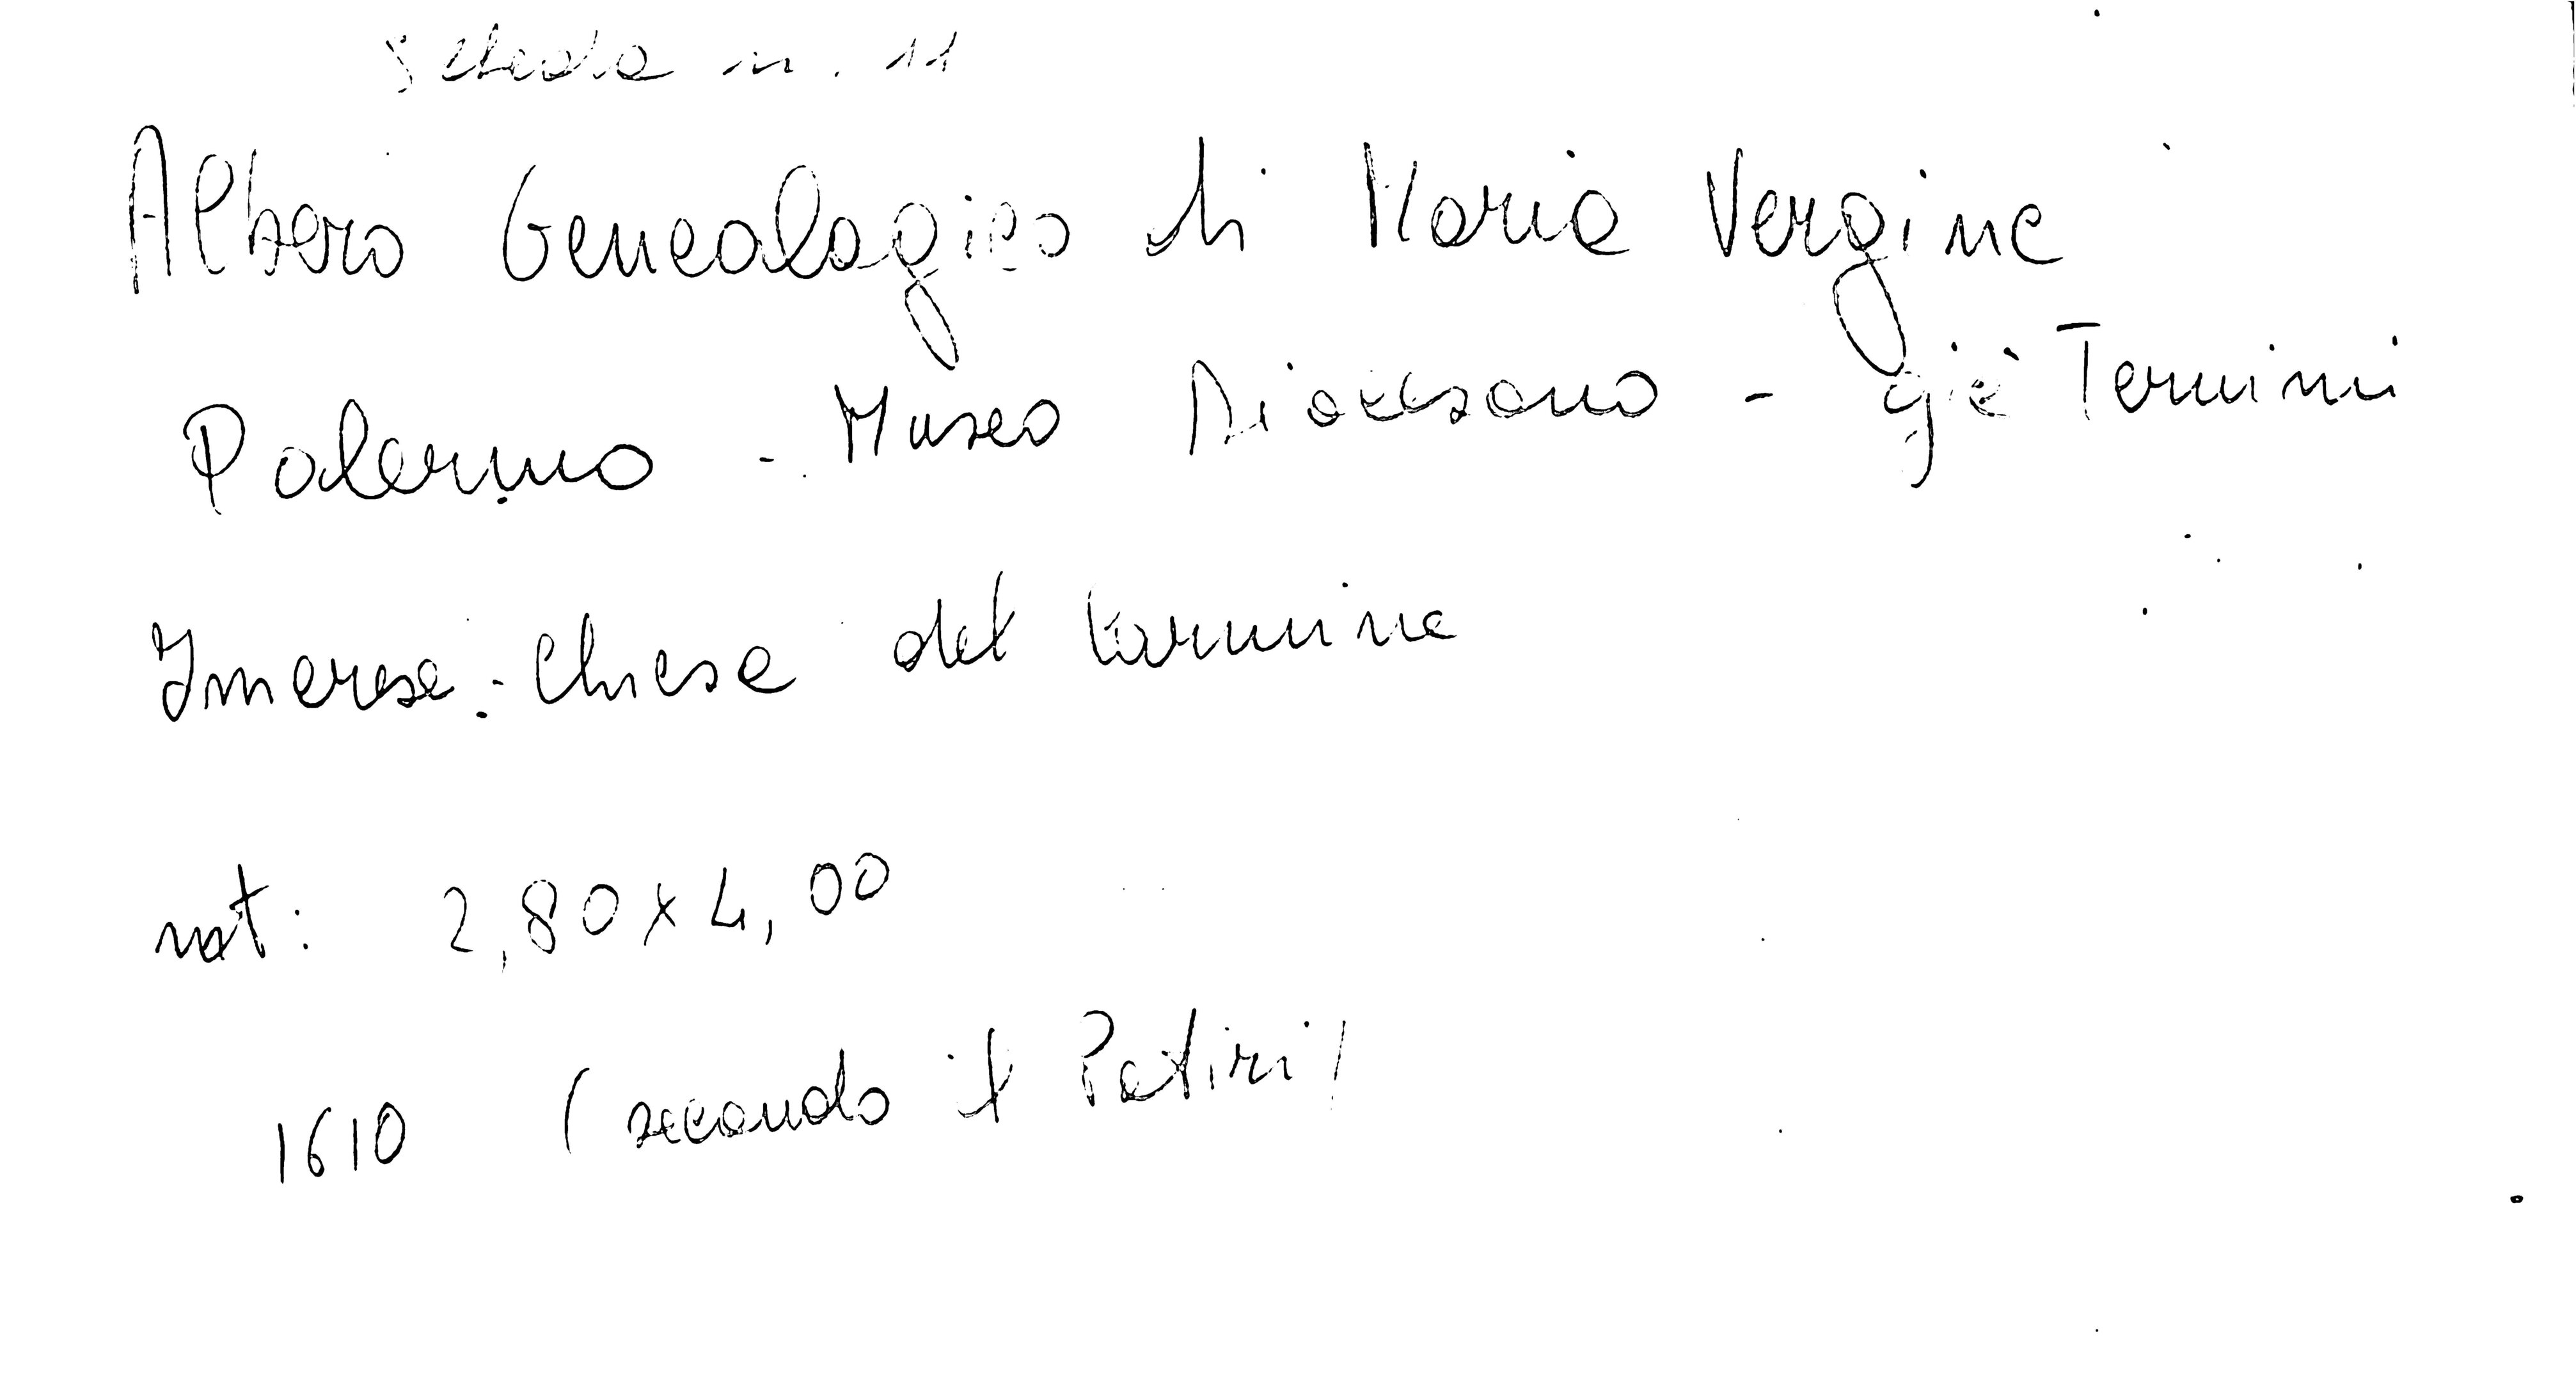 Scheda n. 11
Albero Genealogico di Maria Vergine
Palermo - Museo Diocesano - già Termini
Imerese - Chiesa del Carmine
mt: 2,80 x 4,00
1610 (secondo il Patiri)